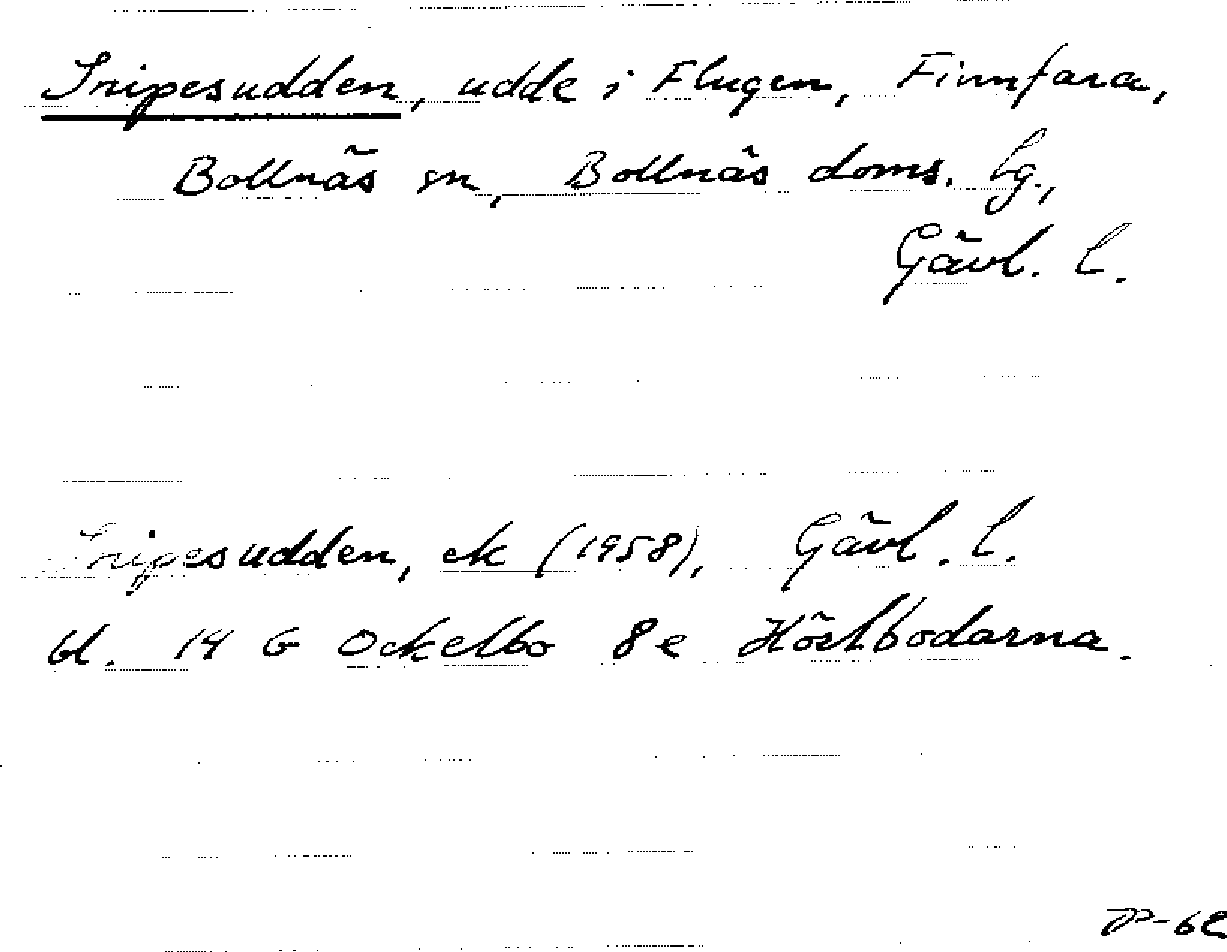 Snipesudden, udde i Flugen, Finnfara,
Bollnäs sn, Bollnäs doms. lg.,
Gävl. l.
Snipesudden, ek (1958), Gävl. l.
bl. 14 G Ockelbo 8e Höstbodarna.